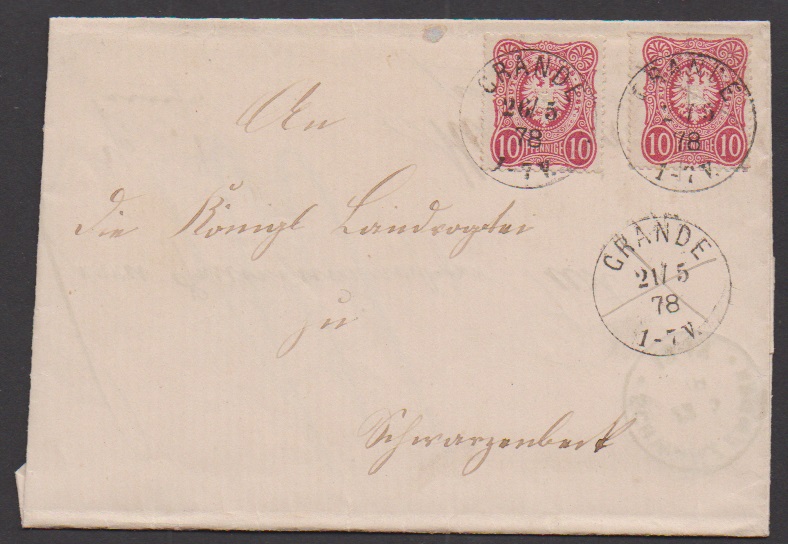 GRANDE
21/5
78
1-7V.
10 PFENNIGE 10
GRANDE
21/5
78
1-7V.
10 PFENNIGE 10
An
die Königl Landvogtei
GRANDE
21/5
78
1-7V.
zu
Schwarzenbeck